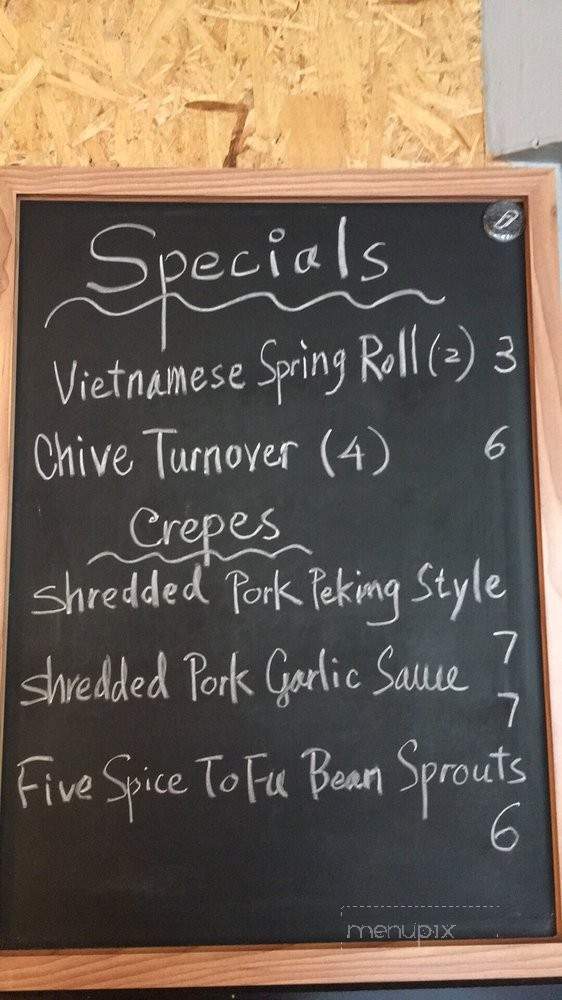 Specials
Vietnamese Spring Roll (2) 3
Chive Turnover (4) 6
Crepes
Shredded Pork Peking Style
7
Shredded Pork Garlic Sauce
7
Five Spice ToFu Bean Sprouts
6
menupix